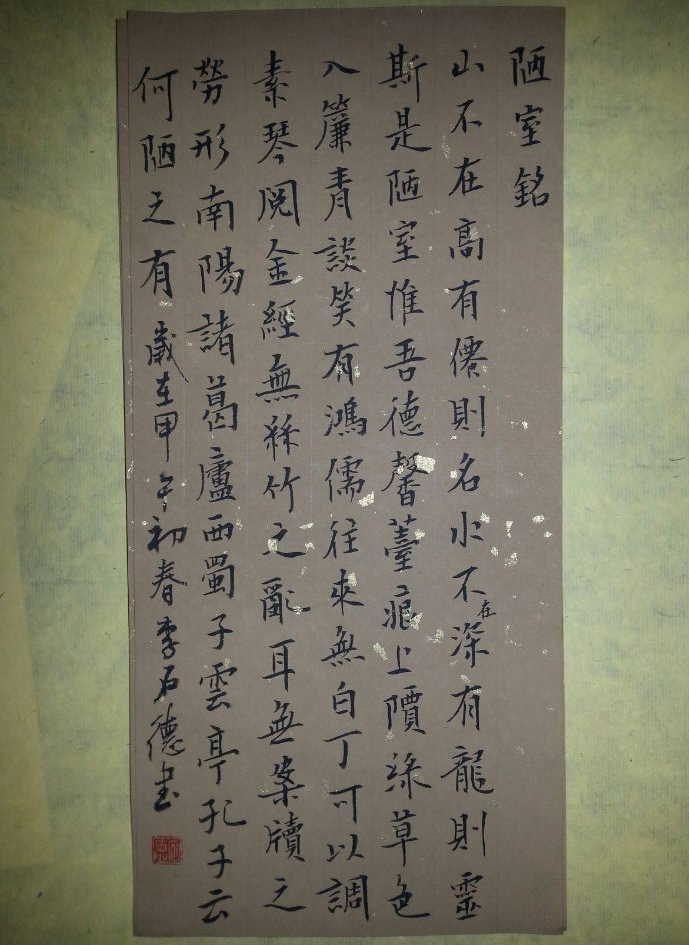 陋室銘
山不在高有僊則名水不在深有龍則靈
斯是陋室惟吾德馨薹痕上隫綠草色
入簾青談笑有鴻儒往來無白丁可以調
素琴閱金經無絲竹之亂耳無案牘之
勞形南陽諸葛廬西蜀子雲亭孔子云
何陋之有歲在甲午初春李石德書